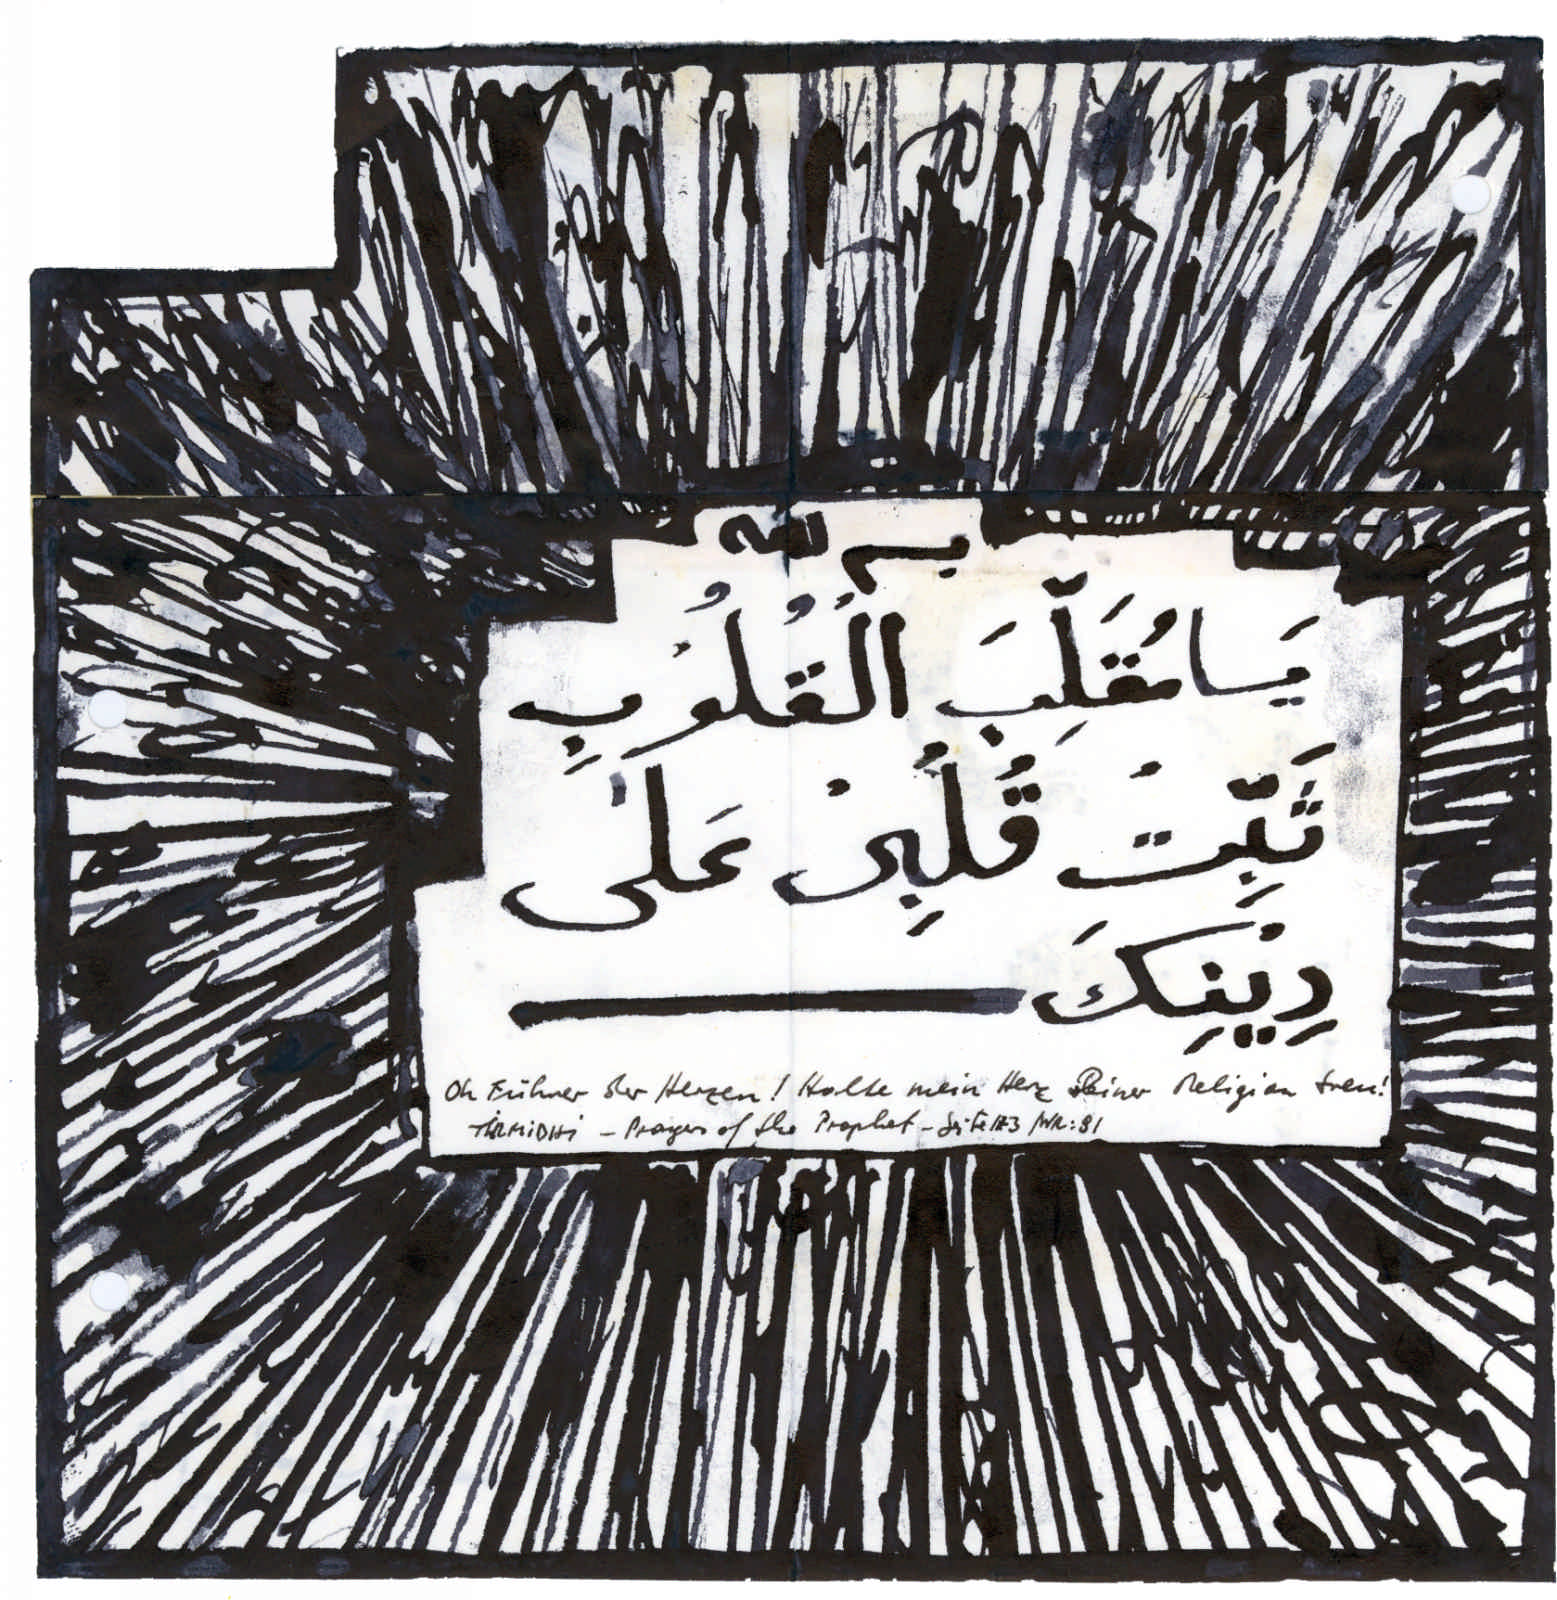 بسم الله
يَا مُقَلِّبَ الْقُلُوْبِ
ثَبِّتْ قَلْبِىْ عَلىٰ
دِيْنِكَ
Oh Führer der Herzen! Halte mein Herz Deiner Religion treu!
TIRMIDHI – Prayers of the Prophet – Seite 173 /NR: 81